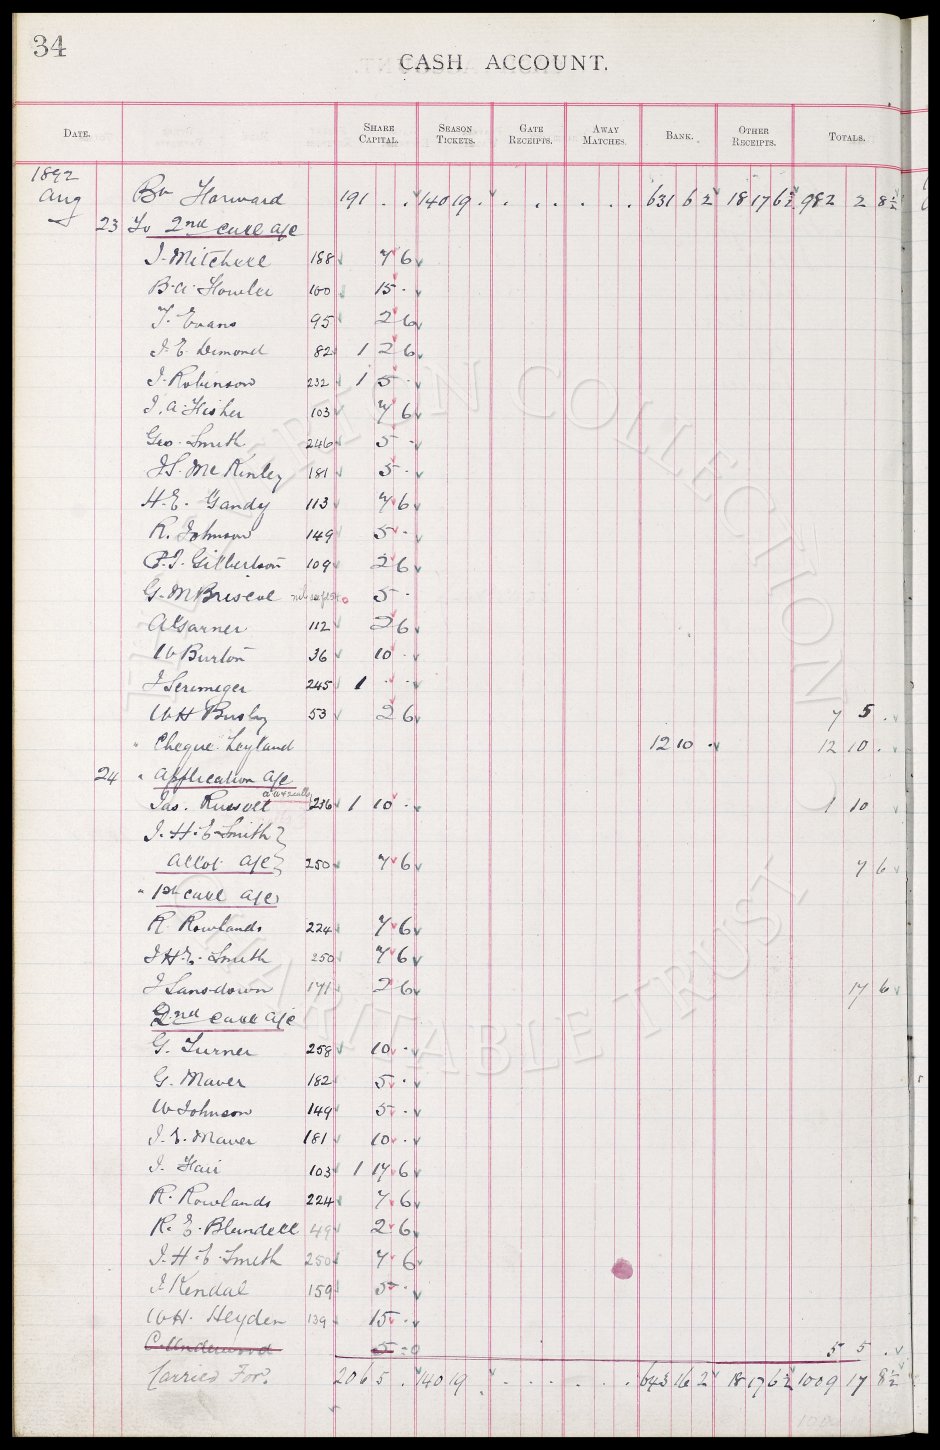 34
CASH ACCOUNT.
DATE. SHARE CAPITAL. SEASON TICKETS. GATE RECEIPTS. AWAY MATCHES. BANK. OTHER RECEIPTS. TOTALS.
1892
Aug Bt Forward 191 . . 140 19 . . . . . . . 631 6 2 18 17 6½ 982 2 8½
23 To 2nd call a/c
J. Mitchell 188 7 6
B. A. Fowler 100 15 .
T. Evans 95 2 6
J. E. Dimond 82 1 2 6
J. Robinson 232 1 5 .
J. A. Fisher 103 7 6
Geo. Smith 246 5 .
J S. McKinley 181 5 .
H. E. Gandy 113 7 6
R. Johnson 149 5 .
P. J. Gilbertson 109 2 6
G. M Briscoe 5 .
A Garner 112 2 6
W Burton 36 10 .
J Scrimeger 245 1 . .
W H Busby 53 2 6 7 5 .
" Cheque Leyland 12 10 . 12 10 .
24 " Application a/c
Jas. Russell 236 1 10 . 1 10
J. H. E. Smith
Allot a/c 250 7 6 7 6
" 1st call a/c
R. Rowlands 224 7 6
J H. E. Smith 250 7 6
J Lansdown 171 2 6 17 6
2nd call a/c
G. Turner 258 10 .
G. Maver 182 5 .
W Johnson 149 5 .
J. E. Maver 181 10 .
J. Fair 103 1 17 6
R. Rowlands 224 7 6
R. E. Blundell 49 2 6
J. H. E. Smith 250 7 6
J. Kendal 159 5 .
W H. Heyden 139 15 .
C. Underwood 5 = 0 5 5 .
Carried For'd 206 5 . 140 19 . . . . . . . 643 16 2 18 17 6½ 1009 17 8½
THE EVERTON COLLECTION
CHARITABLE TRUST